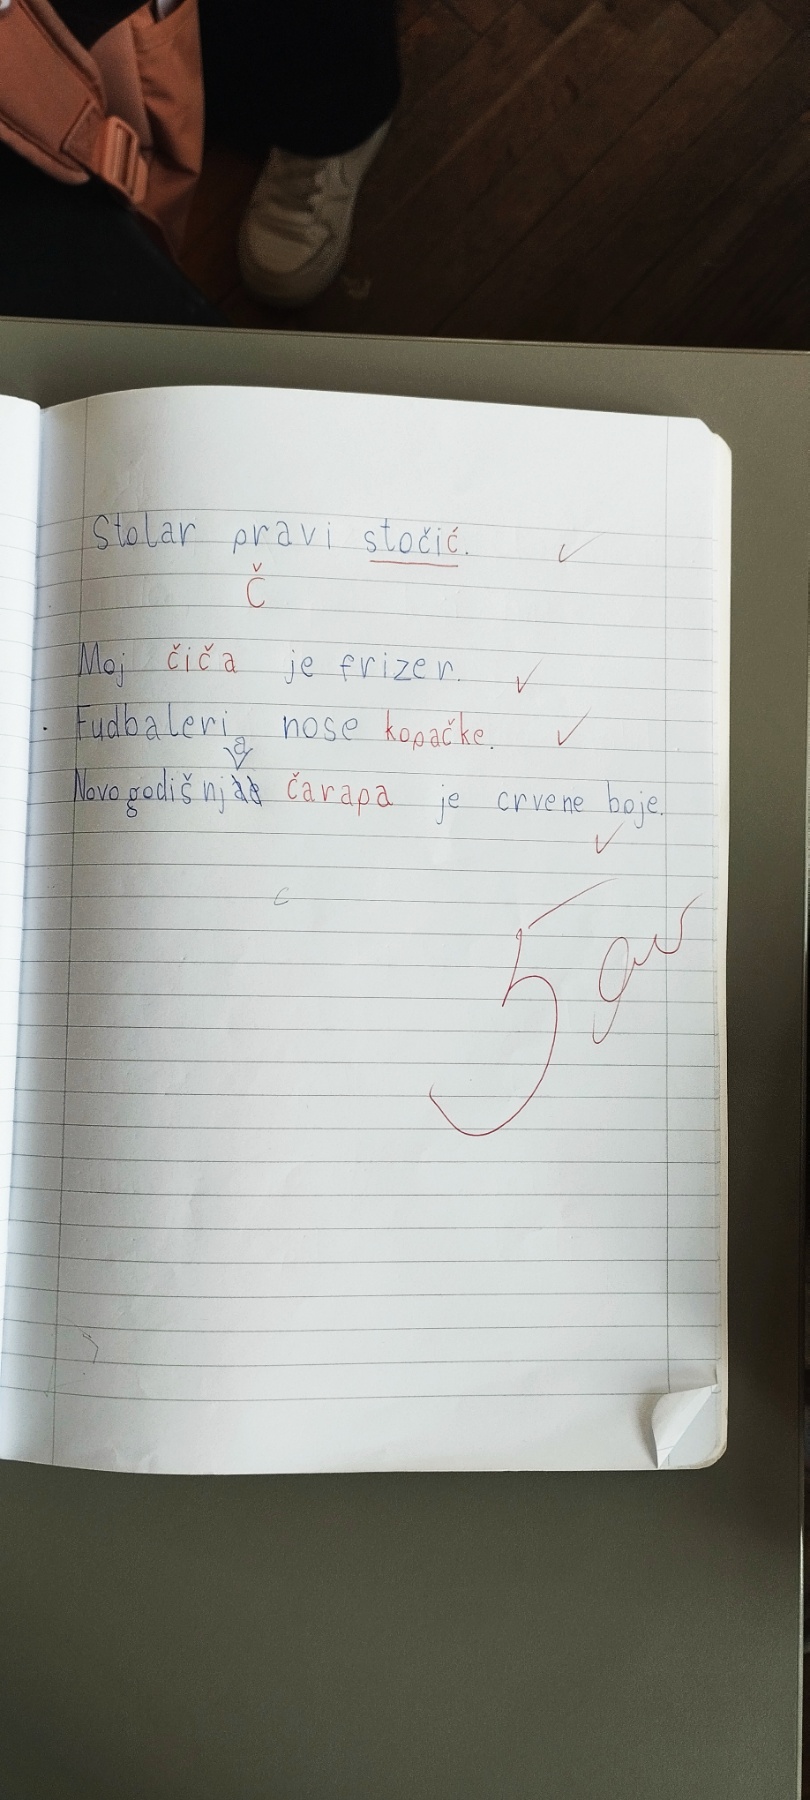 Stolar pravi stočić.
Č
Moj čiča je frizer.
Fudbaleri nose kopačke.
Novogodišnja čarapa je crvene boje.
5